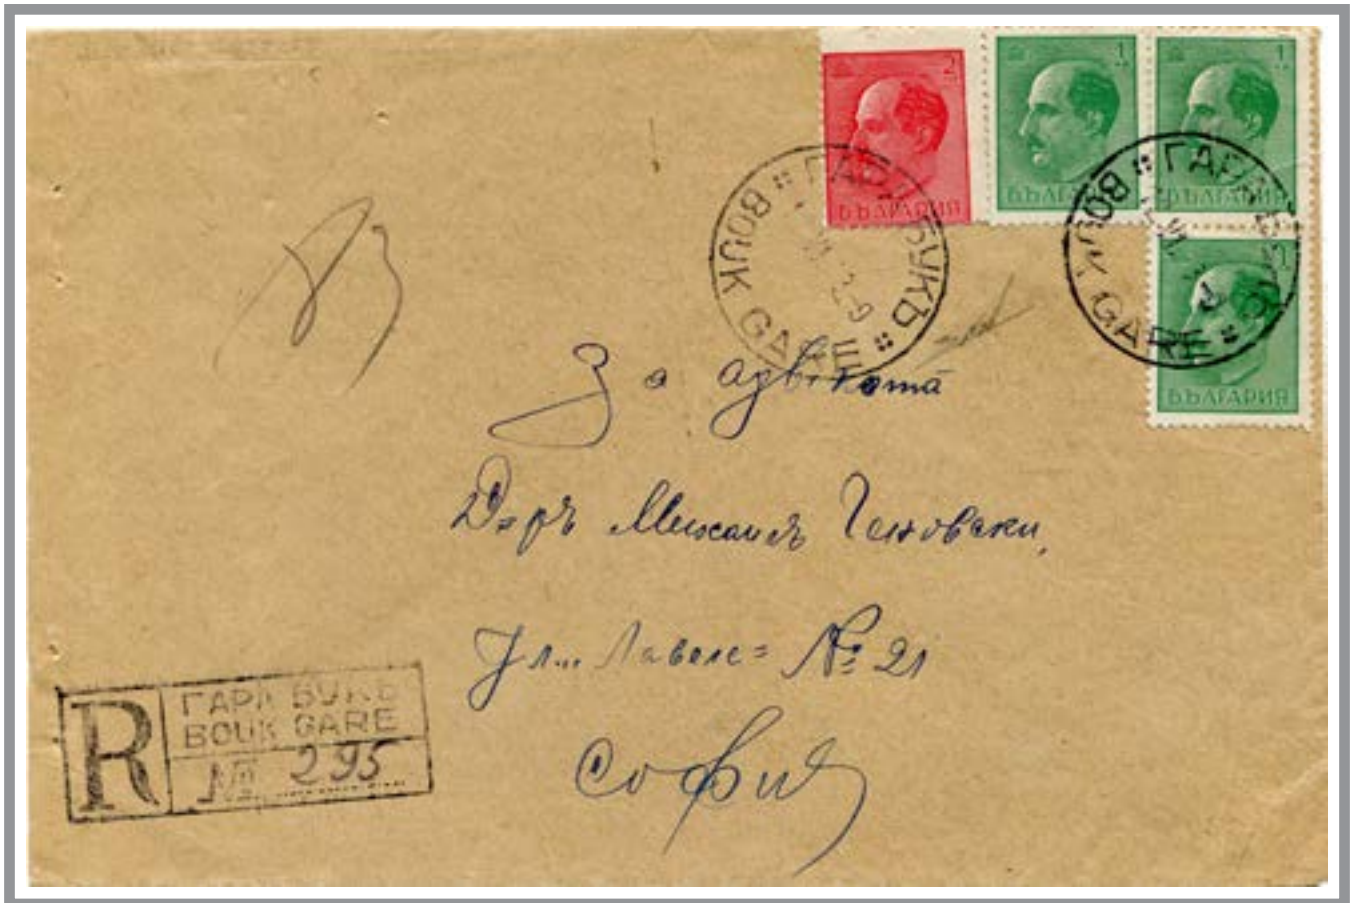 2
1
1
БЪЛГАРИЯ
БЪЛГАРИЯ
БЪЛГАРИЯ
1
БЪЛГАРИЯ
ГАРА БУКЪ
BOUK GARE
ГАРА БУКЪ
BOUK GARE
За адвоката
Д-ръ Михаилъ Геновски,
Ул. Лавеле= № 21
София
R
ГАРА БУКЪ
BOUK GARE
№ 295